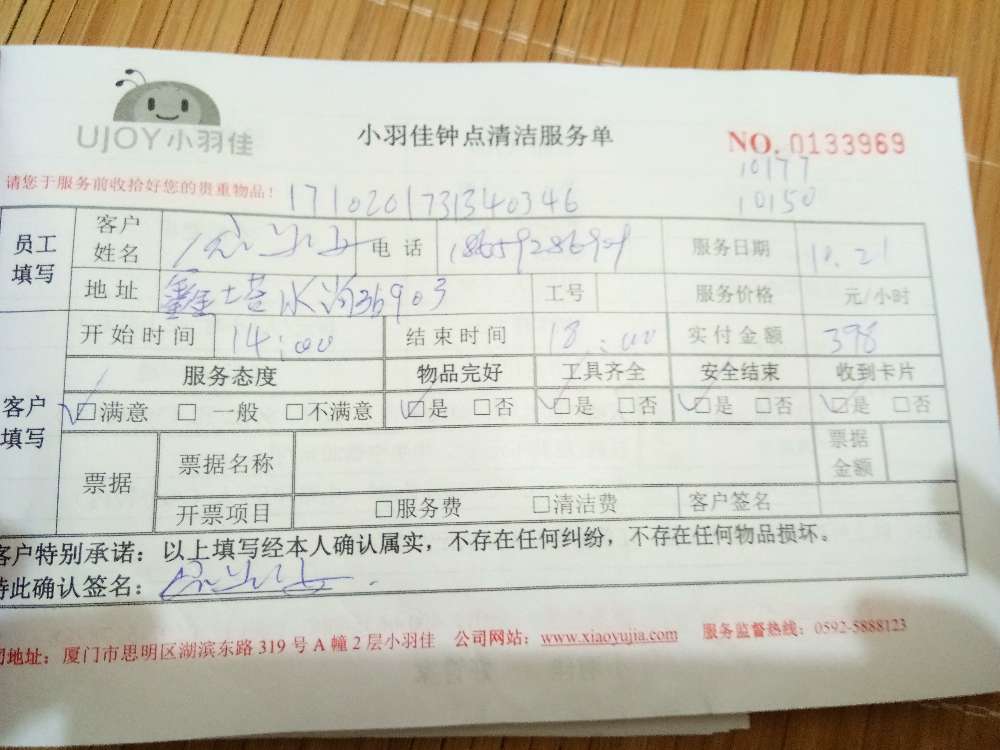 UJOY小羽佳
小羽佳钟点清洁服务单
NO. 0133969
10177
请您于服务前收拾好您的贵重物品！ 1710201731340346 10150
员工填写 客户姓名 电话 服务日期 10.21
地址 36903 工号 服务价格 元/小时
客户填写 开始时间 14:00 结束时间 18:00 实付金额 398
服务态度 物品完好 工具齐全 安全结束 收到卡片
☑满意 □一般 □不满意 ☑是 □否 ☑是 □否 ☑是 □否 ☑是 □否
票据 票据名称 票据金额
开票项目 □服务费 □清洁费 客户签名
客户特别承诺：以上填写经本人确认属实，不存在任何纠纷，不存在任何物品损坏。
特此确认签名：
司地址：厦门市思明区湖滨东路 319 号 A 幢 2 层小羽佳 公司网站：www.xiaoyujia.com 服务监督热线：0592-5888123